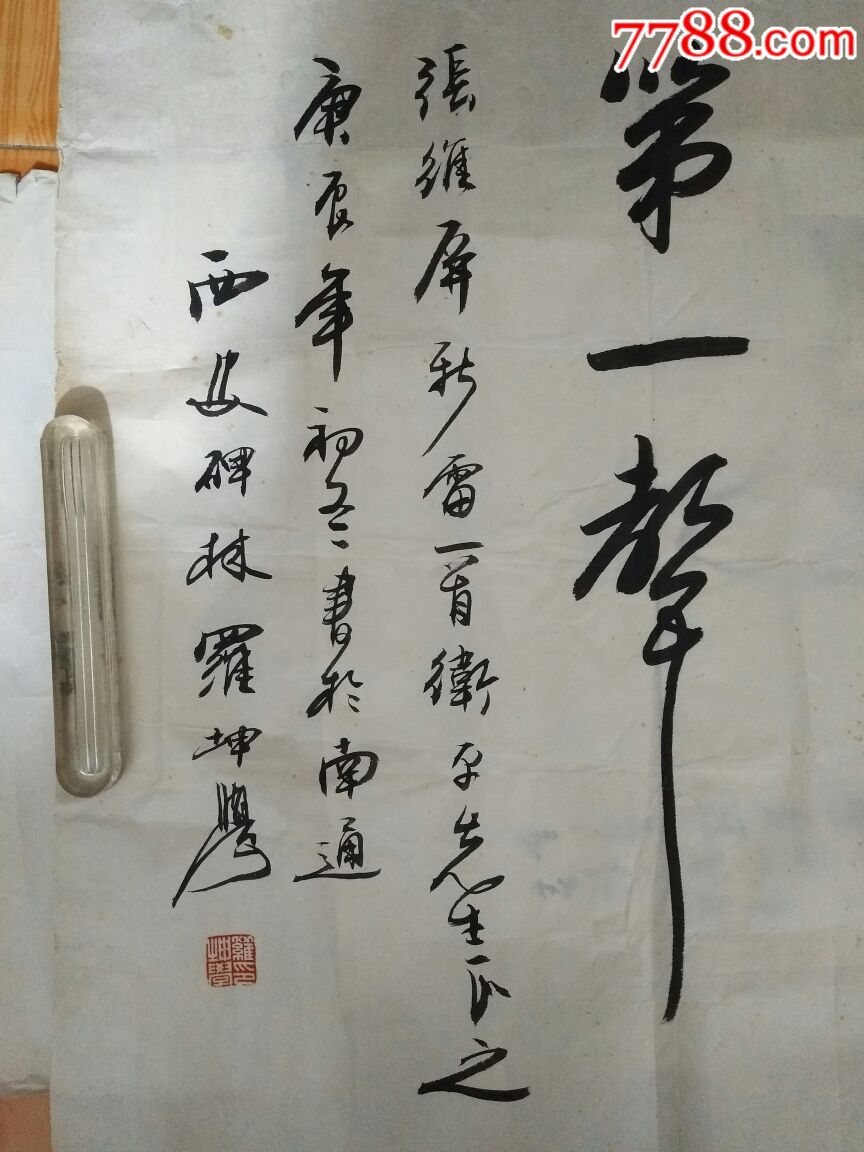 7788.com
第一聲
張維屏新雷一首衛平先生正之
庚辰年初冬書於南通
西安碑林羅坤學
羅坤學印